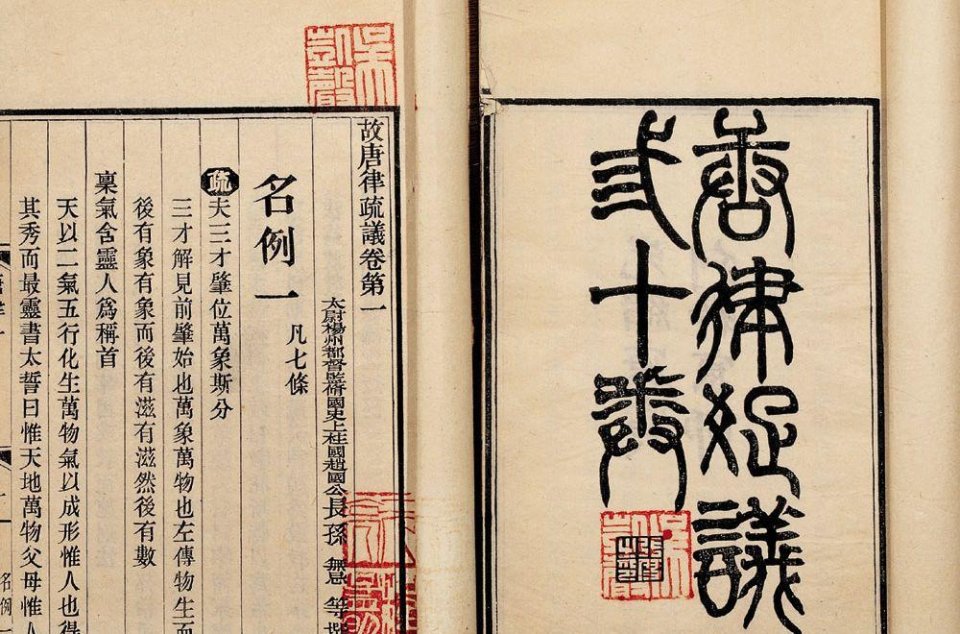 唐律疏議
弎十卷
故唐律疏議卷第一
太尉楊州都督監脩國史上柱國趙國公長孫無忌等
名例一 凡七條
疏夫三才肇位萬象斯分
三才解見前肇始也萬象萬物也左傳物生而
後有象有象而後有滋有滋然後有數
稟氣含靈人爲稱首
天以二氣五行化生萬物氣以成形惟人也得
其秀而最靈書太誓曰惟天地萬物父母惟人
名例